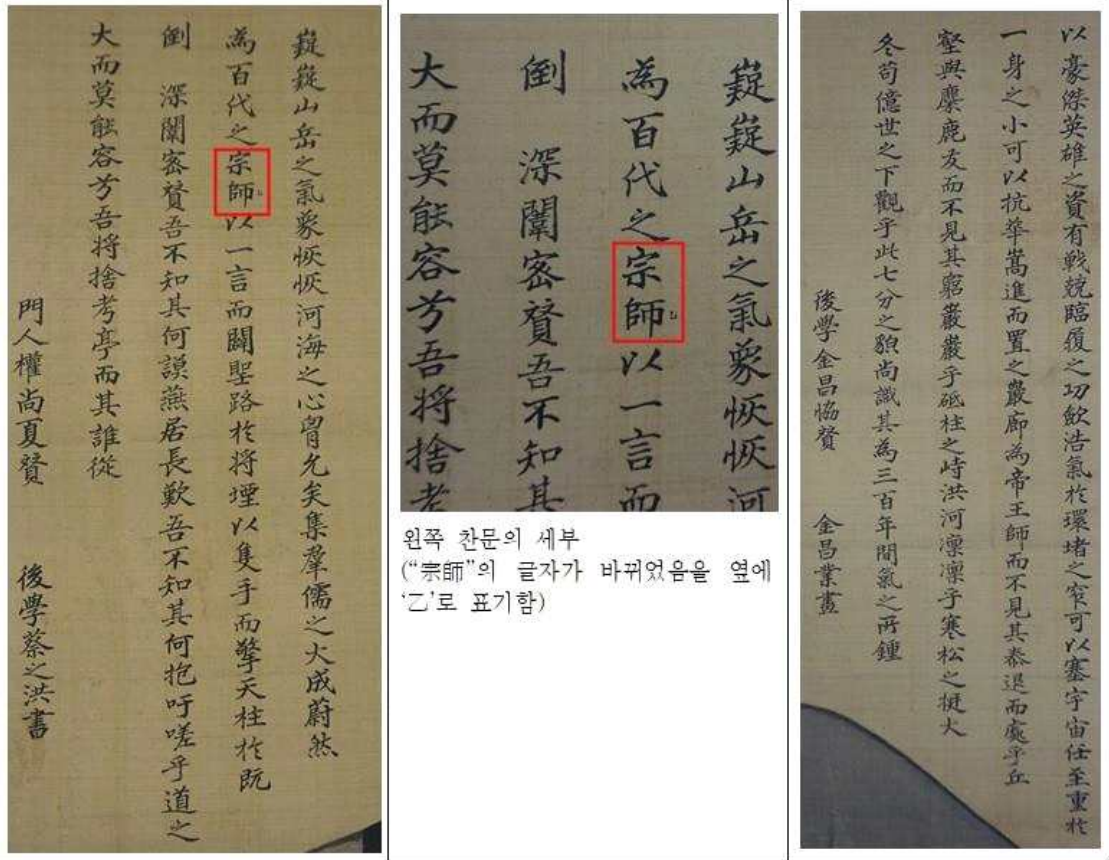 嶷嶷山岳之氣象恢恢河海之心胷允矣集羣儒之大成蔚然
為百代之宗師乙以一言而闢聖路扵将堙以隻手而擎天柱扵既
倒 深闈密贊吾不知其何謨燕居長歎吾不知其何抱吁嗟乎道之
大而莫能容兮吾将捨考亭而其誰從
門人權尚夏贊 後學蔡之洪書
嶷嶷山岳之氣象恢恢河
為百代之宗師乙以一言而
倒 深闈密贊吾不知其
大而莫能容兮吾将捨考
왼쪽 찬문의 세부
(“宗師”의 글자가 바뀌었음을 옆에
‘乙’로 표기함)
以豪傑英雄之資有戰兢臨履之功飲浩氣扵環堵之窄可以塞宇宙任至重扵
一身之小可以抗華嵩進而置之巖廊為帝王師而不見其泰退而處乎丘
壑與麋鹿友而不見其窮巖巖乎砥柱之峙洪河凜凜乎寒松之挺大
冬苟億世之下觀乎此七分之貌尚識其為三百年間氣之所鍾
後學金昌協贊 金昌業畫